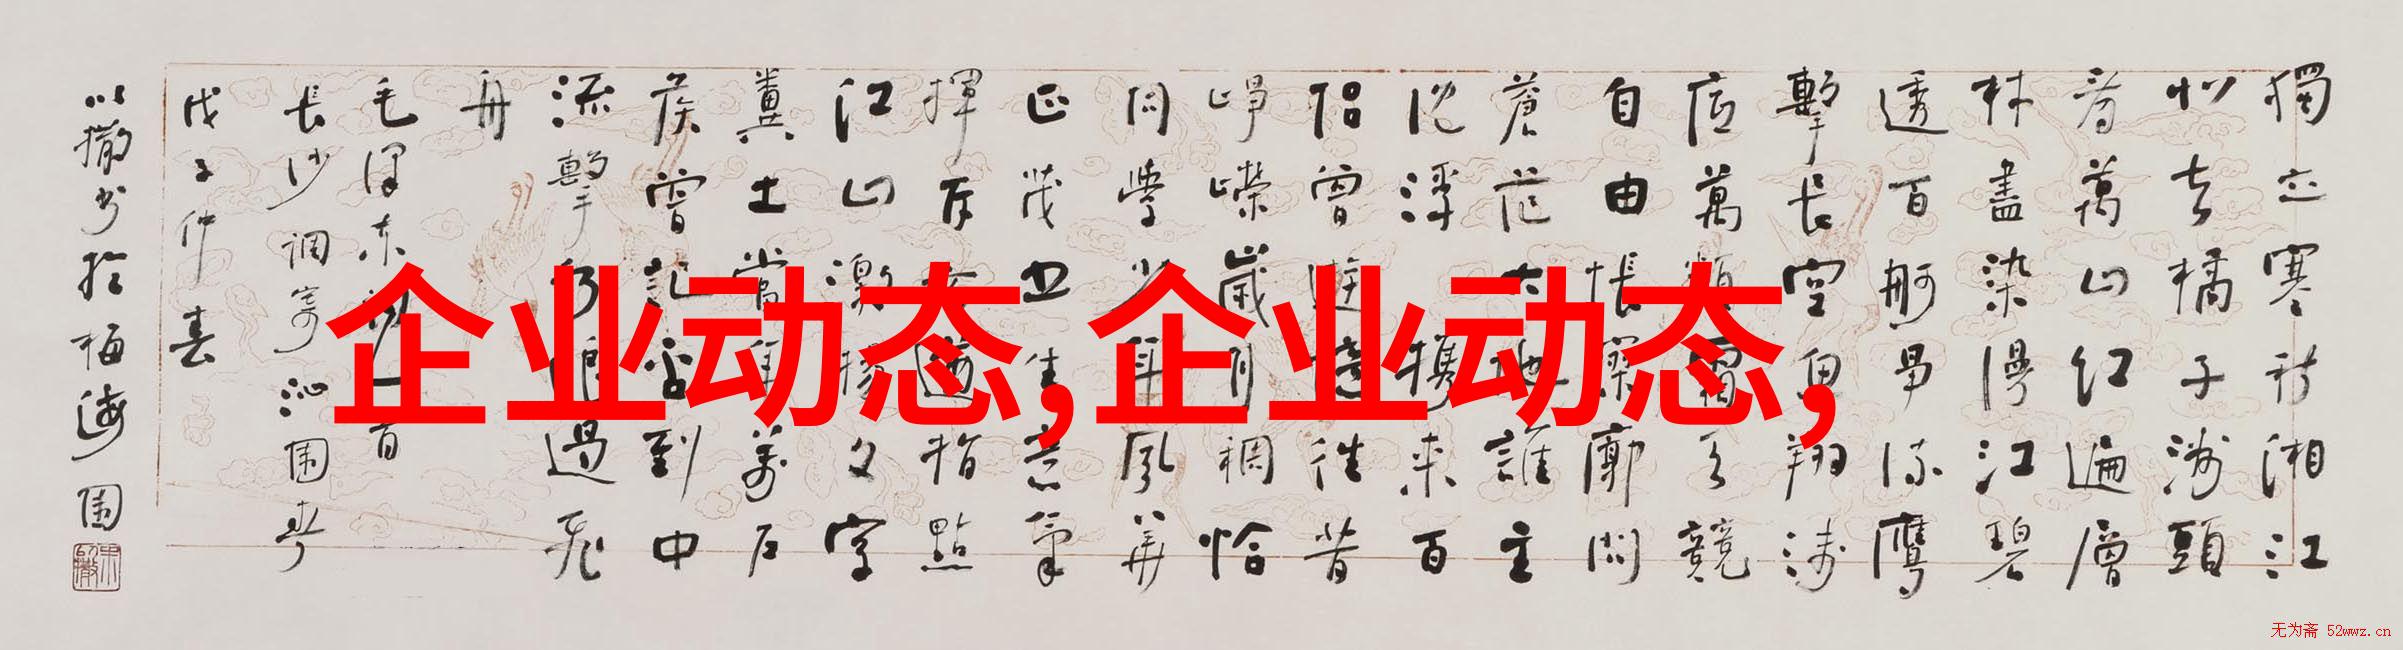 獨立寒秋湘江
北去橘子洲頭
看萬山红遍層
林盡染漫江碧
透百舸爭流鷹
擊長空魚翔淺
底萬類霜天競
自由悵寥廓問
蒼茫大地誰主
沈浮攜來百
侶曾遊憶往昔
崢嶸歲月稠恰
同學少年風華
正茂書生意氣
揮斥方遒指點
江山激揚文字
糞土當年萬戶
侯曾記否到中
流擊水浪遏飛
舟
毛澤東詞一首
長沙調寄沁園春
戊子仲春
以撤书於梅海園
企业动态,企业动态,
无为斋 52wwz.cn